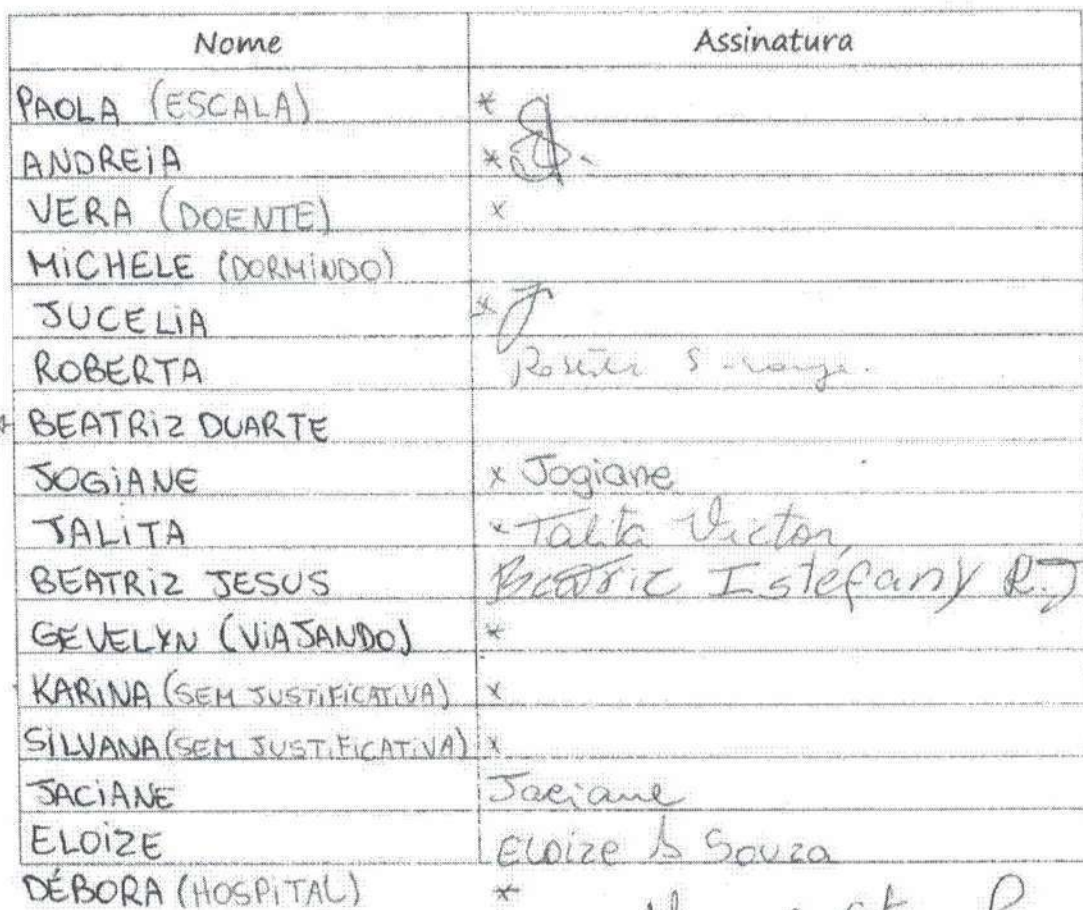 Nome Assinatura
PAOLA (ESCALA) *
ANDREIA *
VERA (DOENTE) x
MICHELE (DORMINDO)
JUCELIA * J
ROBERTA
* BEATRIZ DUARTE
JOGIANE x Jogiane
TALITA x Talita Victor
BEATRIZ JESUS Beatriz Istefany R.J
GEVELYN (VIAJANDO) *
KARINA (SEM JUSTIFICATIVA) x
SILVANA (SEM JUSTIFICATIVA) x
JACIANE Jaciane
ELOIZE Eloize S Souza
DÉBORA (HOSPITAL) *